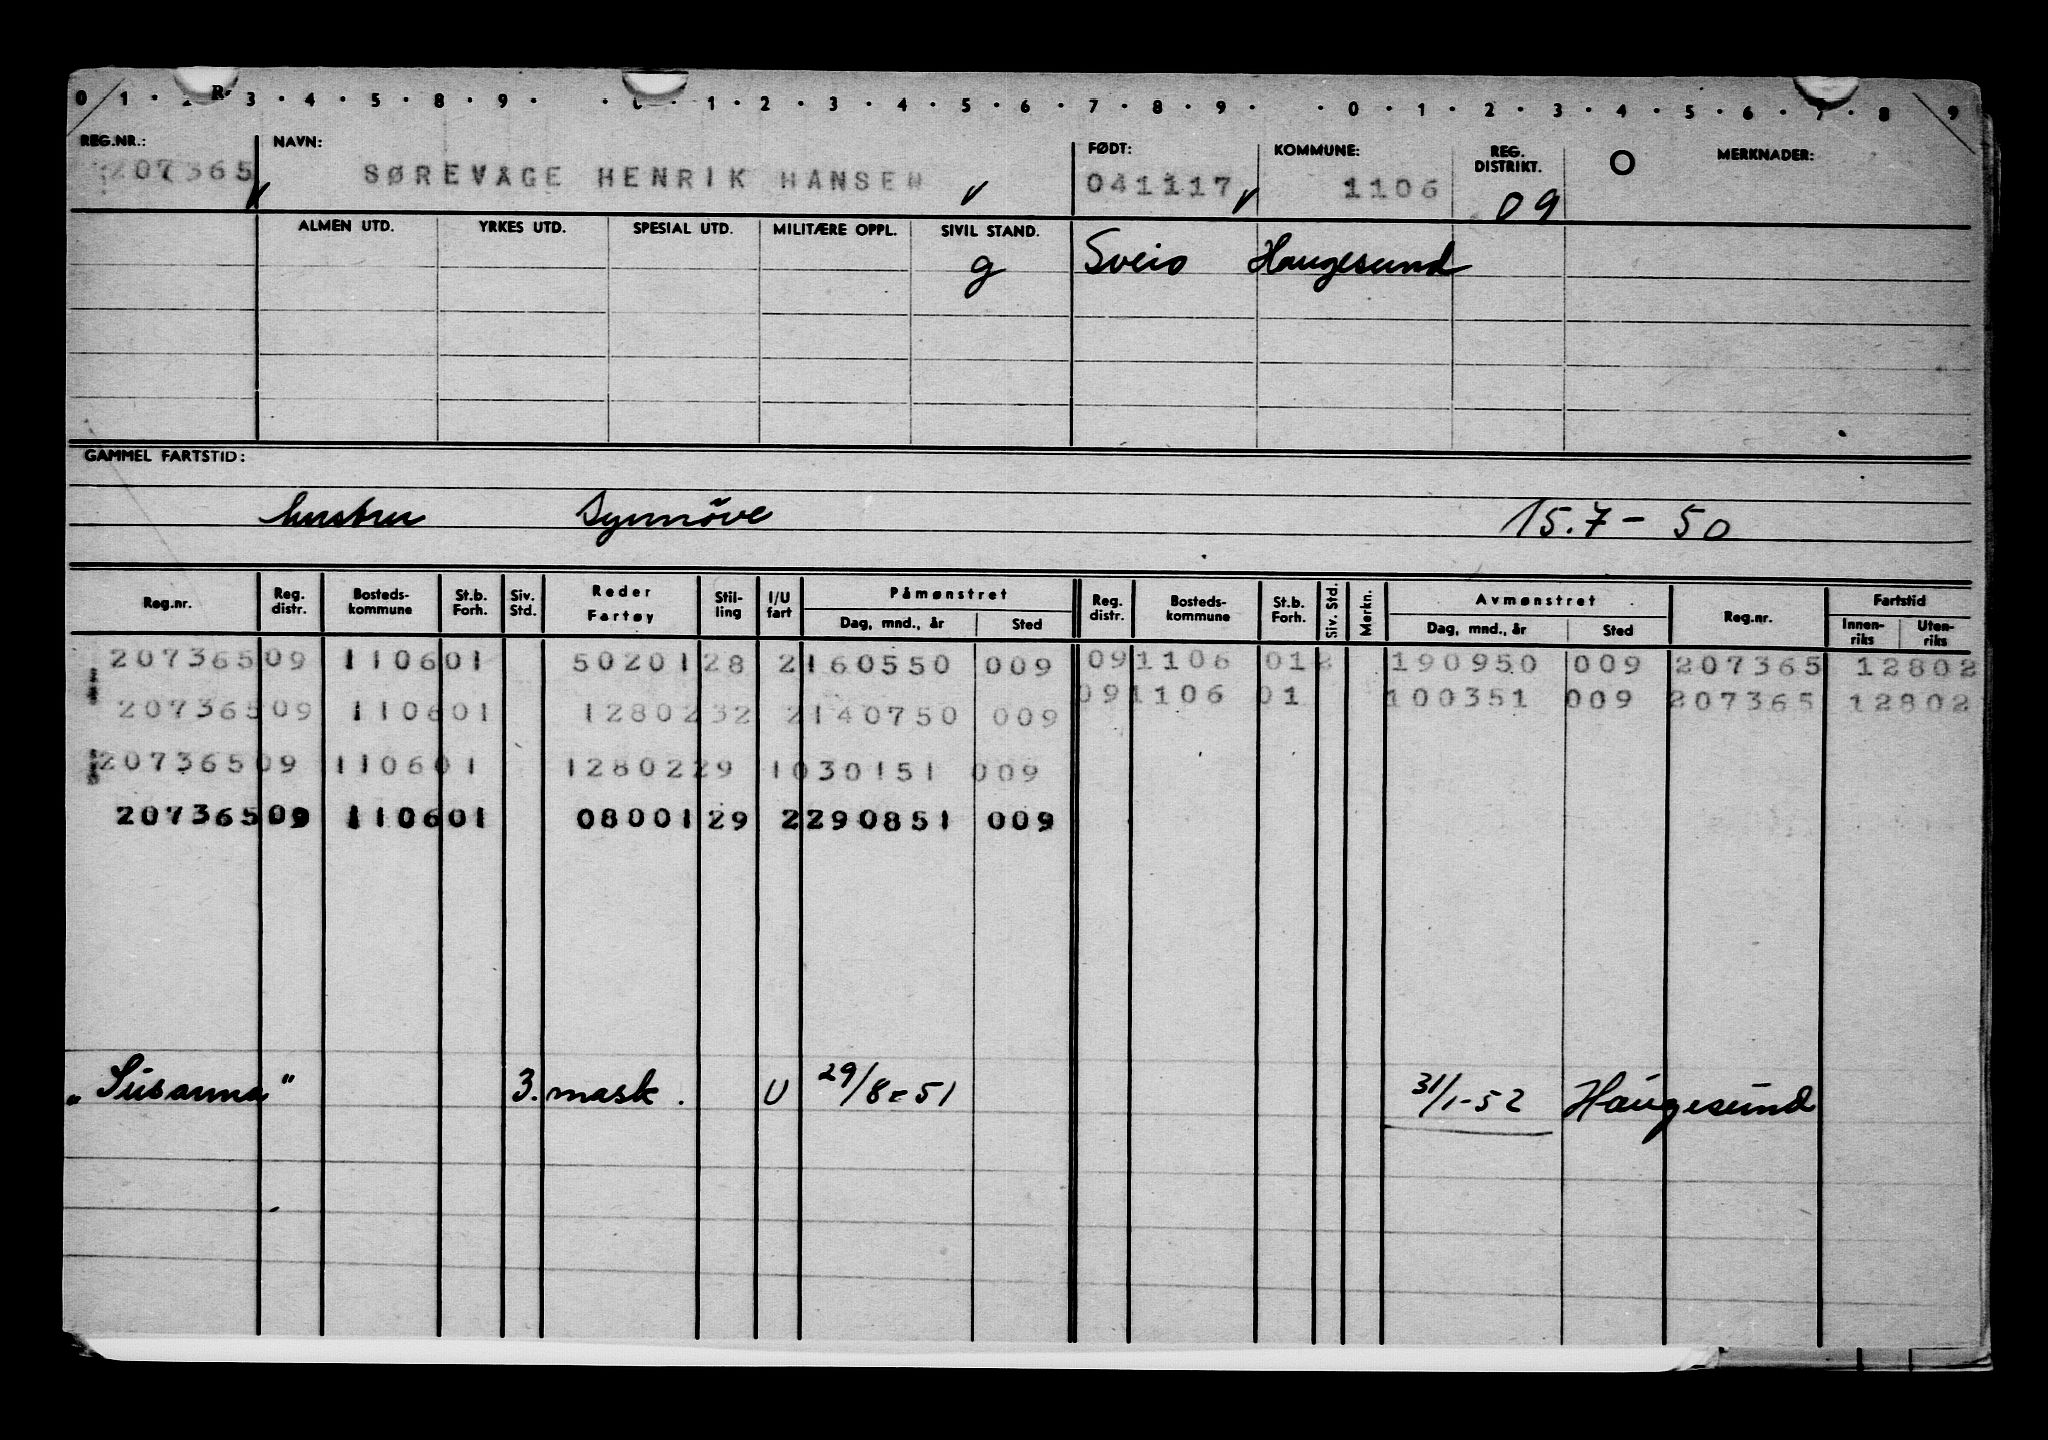 0 1 . 2 R. 3 . 4 . 5 . 8 . 9 . . 0 . 1 . 2 . 3 . 4 . 5 . 6 . 7 . 8 . 9 . . 0 . 1 . 2 . 3 . 4 . 5 . 6 . 7 . 8 9
REG.NR.: NAVN: FØDT: KOMMUNE: REG. DISTRIKT. O MERKNADER:
207365 SØREVÅGE HENRIK HANSEN 041117 1106 09
ALMEN UTD. YRKES UTD. SPESIAL UTD. MILITÆRE OPPL. SIVIL STAND.
g Sveio Haugesund
GAMMEL FARTSTID:
hustru Synnöve 15.7 - 50
Reg.nr. Reg. distr. Bosteds- kommune St.b. Forh. Siv. Std. Reder Fartøy Stil- ling I/U fart Påmønstret Dag, mnd., år Sted Reg. distr. Bosteds- kommune St.b. Forh. Siv. Std. Merkn. Avmønstret Dag, mnd., år Sted Reg.nr. Fartstid Innen- riks Uten- riks
207365 09 1106 01 50201 28 2 160550 009 09 1106 01 2 190950 009 207365 12802
207365 09 1106 01 12802 32 2 140750 009 09 1106 01 100351 009 207365 12802
207365 09 1106 01 12802 29 1 030151 009
207365 09 1106 01 08001 29 2 290851 009
„Susanna" 3. mask. U 29/8-51 31/1-52 Haugesund